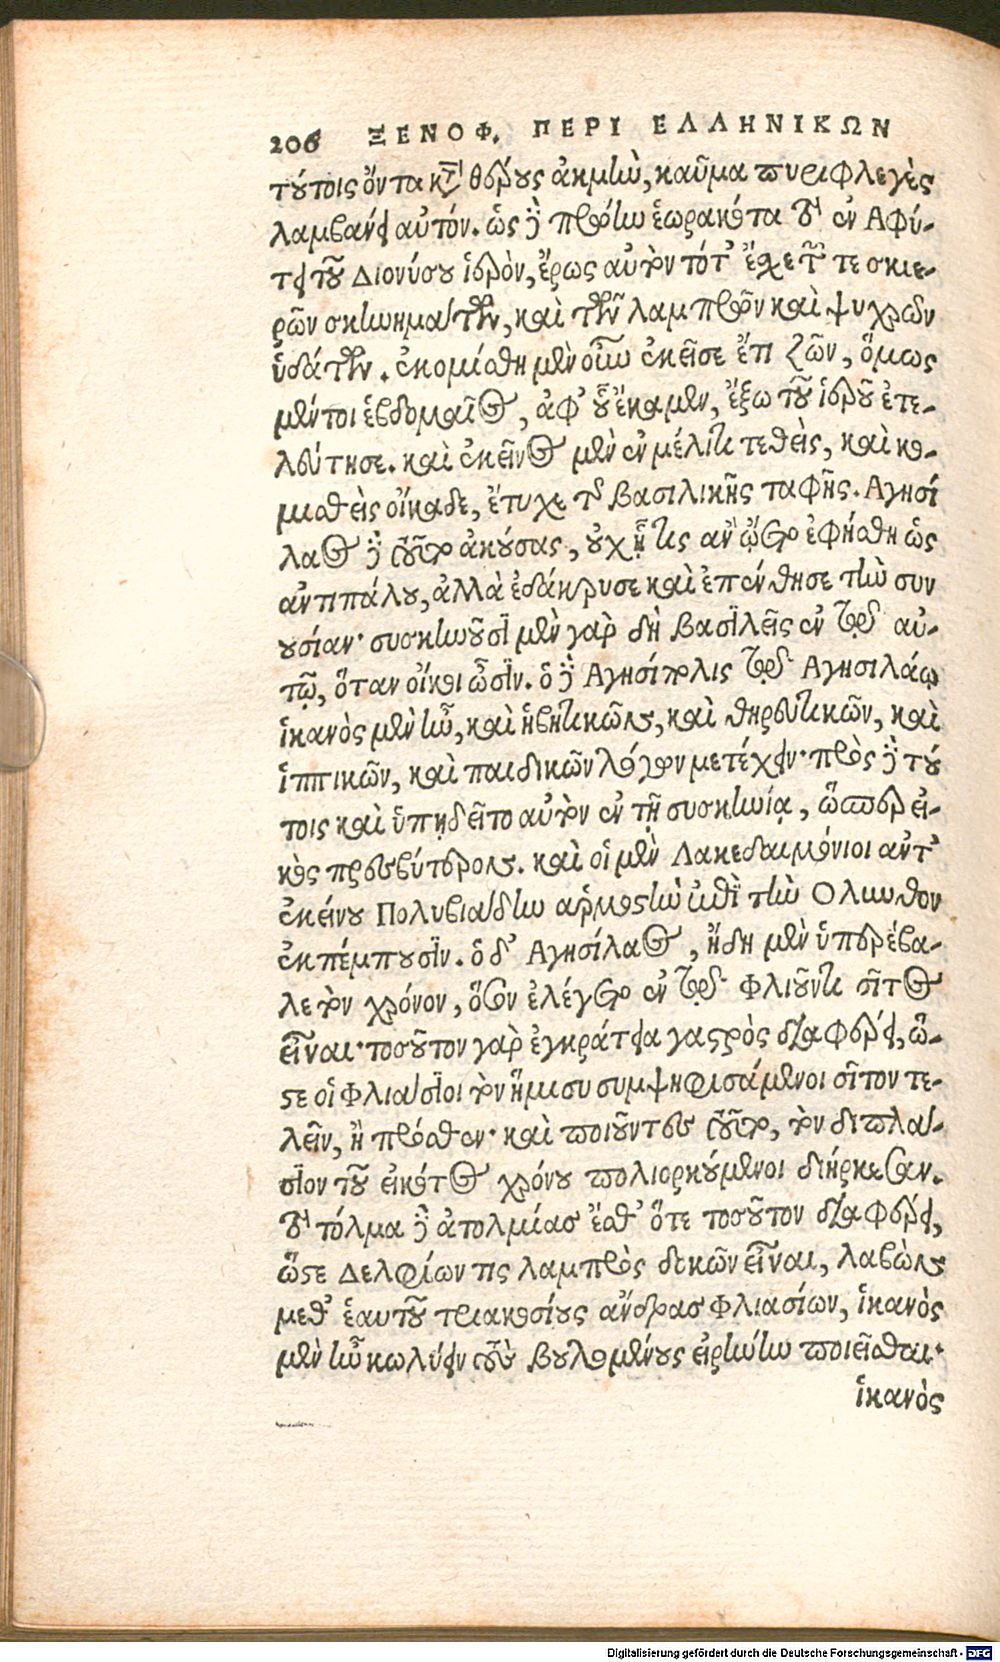 206 ΞΕΝΟΦ. ΠΕΡΙ ΕΛΛΗΝΙΚΩΝ
τούτοις ὄντα κατὰ θέρους ἀκμὴν, καῦμα πυριφλεγὲς
λαμβάνει αὐτόν. ὡς δὲ πρότην ἑωρακότα τὸ ἐν Αφύ-
τει τοῦ Διονύσου ἱερὸν, ἔρως αὐτὸν τότ' ἔσχε τῶν τε σκιε-
ρῶν σκηνημάτων, καὶ τῶν λαμπρῶν καὶ ψυχρῶν
ὑδάτων. ἐκομίσθη μὲν οὖν ἐκεῖσε ἔτι ζῶν, ὅμως
μέντοι ἑβδομαῖος, ἀφ' οὗ ἔκαμεν, ἔξω τοῦ ἱεροῦ ἐτε-
λεύτησε. καὶ ἐκεῖνος μὲν ἐν μέλιτι τεθεὶς, καὶ κο-
μισθεὶς οἴκαδε, ἔτυχε τῆς βασιλικῆς ταφῆς. Αγησί
λαος δὲ τοῦτο ἀκούσας, οὐχ ᾗ τις ἂν ᾤετο ἐφήσθη ὡς
ἀντιπάλου, ἀλλὰ ἐδάκρυσε καὶ ἐπένθησε τὴν συν
ουσίαν· συσκηνοῦσι μὲν γὰρ δὴ βασιλεῖς ἐν τῷ αὐ-
τῷ, ὅταν οἴκοι ὦσιν. ὁ δὲ Αγησίπολις τῷ Αγησιλάῳ
ἱκανὸς μὲν ἦν, καὶ ἡβητικῶν, καὶ θηρευτικῶν, καὶ
ἱππικῶν, καὶ παιδικῶν λόγων μετέχειν· πρὸς δὲ τού
τοις καὶ ὑπῃδεῖτο αὐτὸν ἐν τῇ συσκηνίᾳ, ὥσπερ εἰ-
κὸς πρεσβύτερον. καὶ οἱ μὲν Λακεδαιμόνιοι ἀντ'
ἐκείνου Πολυβιάδην ἁρμοστὴν ἐπὶ τὴν Ολυνθον
ἐκπέμπουσιν. ὁ δ' Αγησίλαος, ἤδη μὲν ὑπερέβα-
λε τὸν χρόνον, ὅσον ἐλέγετο ἐν τῷ Φλιοῦντι σῖτος
εἶναι· τοσοῦτον γὰρ ἐγκράτεια γαστρὸς διαφέρει, ὥ-
στε οἱ Φλιάσιοι τὸν ἥμισυ συμψηφισάμενοι σῖτον τε-
λεῖν, ἢ πρόσθεν· καὶ ποιοῦντες τοῦτο, τὸν διπλά-
σιον τοῦ εἰκότος χρόνου πολιορκούμενοι διήρκεσαν.
τὸ τόλμα δὲ ἀτολμίας ἔσθ' ὅτε τοσοῦτον διαφέρει,
ὥστε Δελφίων τις λαμπρὸς δοκῶν εἶναι, λαβὼν
μεθ' ἑαυτοῦ τριακοσίους ἄνδρας Φλιασίων, ἱκανὸς
μὲν ἦν κωλύειν τοὺς βουλομένους εἰρήνην ποιεῖσθαι·
ἱκανὸς
Digitalisierung gefördert durch die Deutsche Forschungsgemeinschaft - DFG